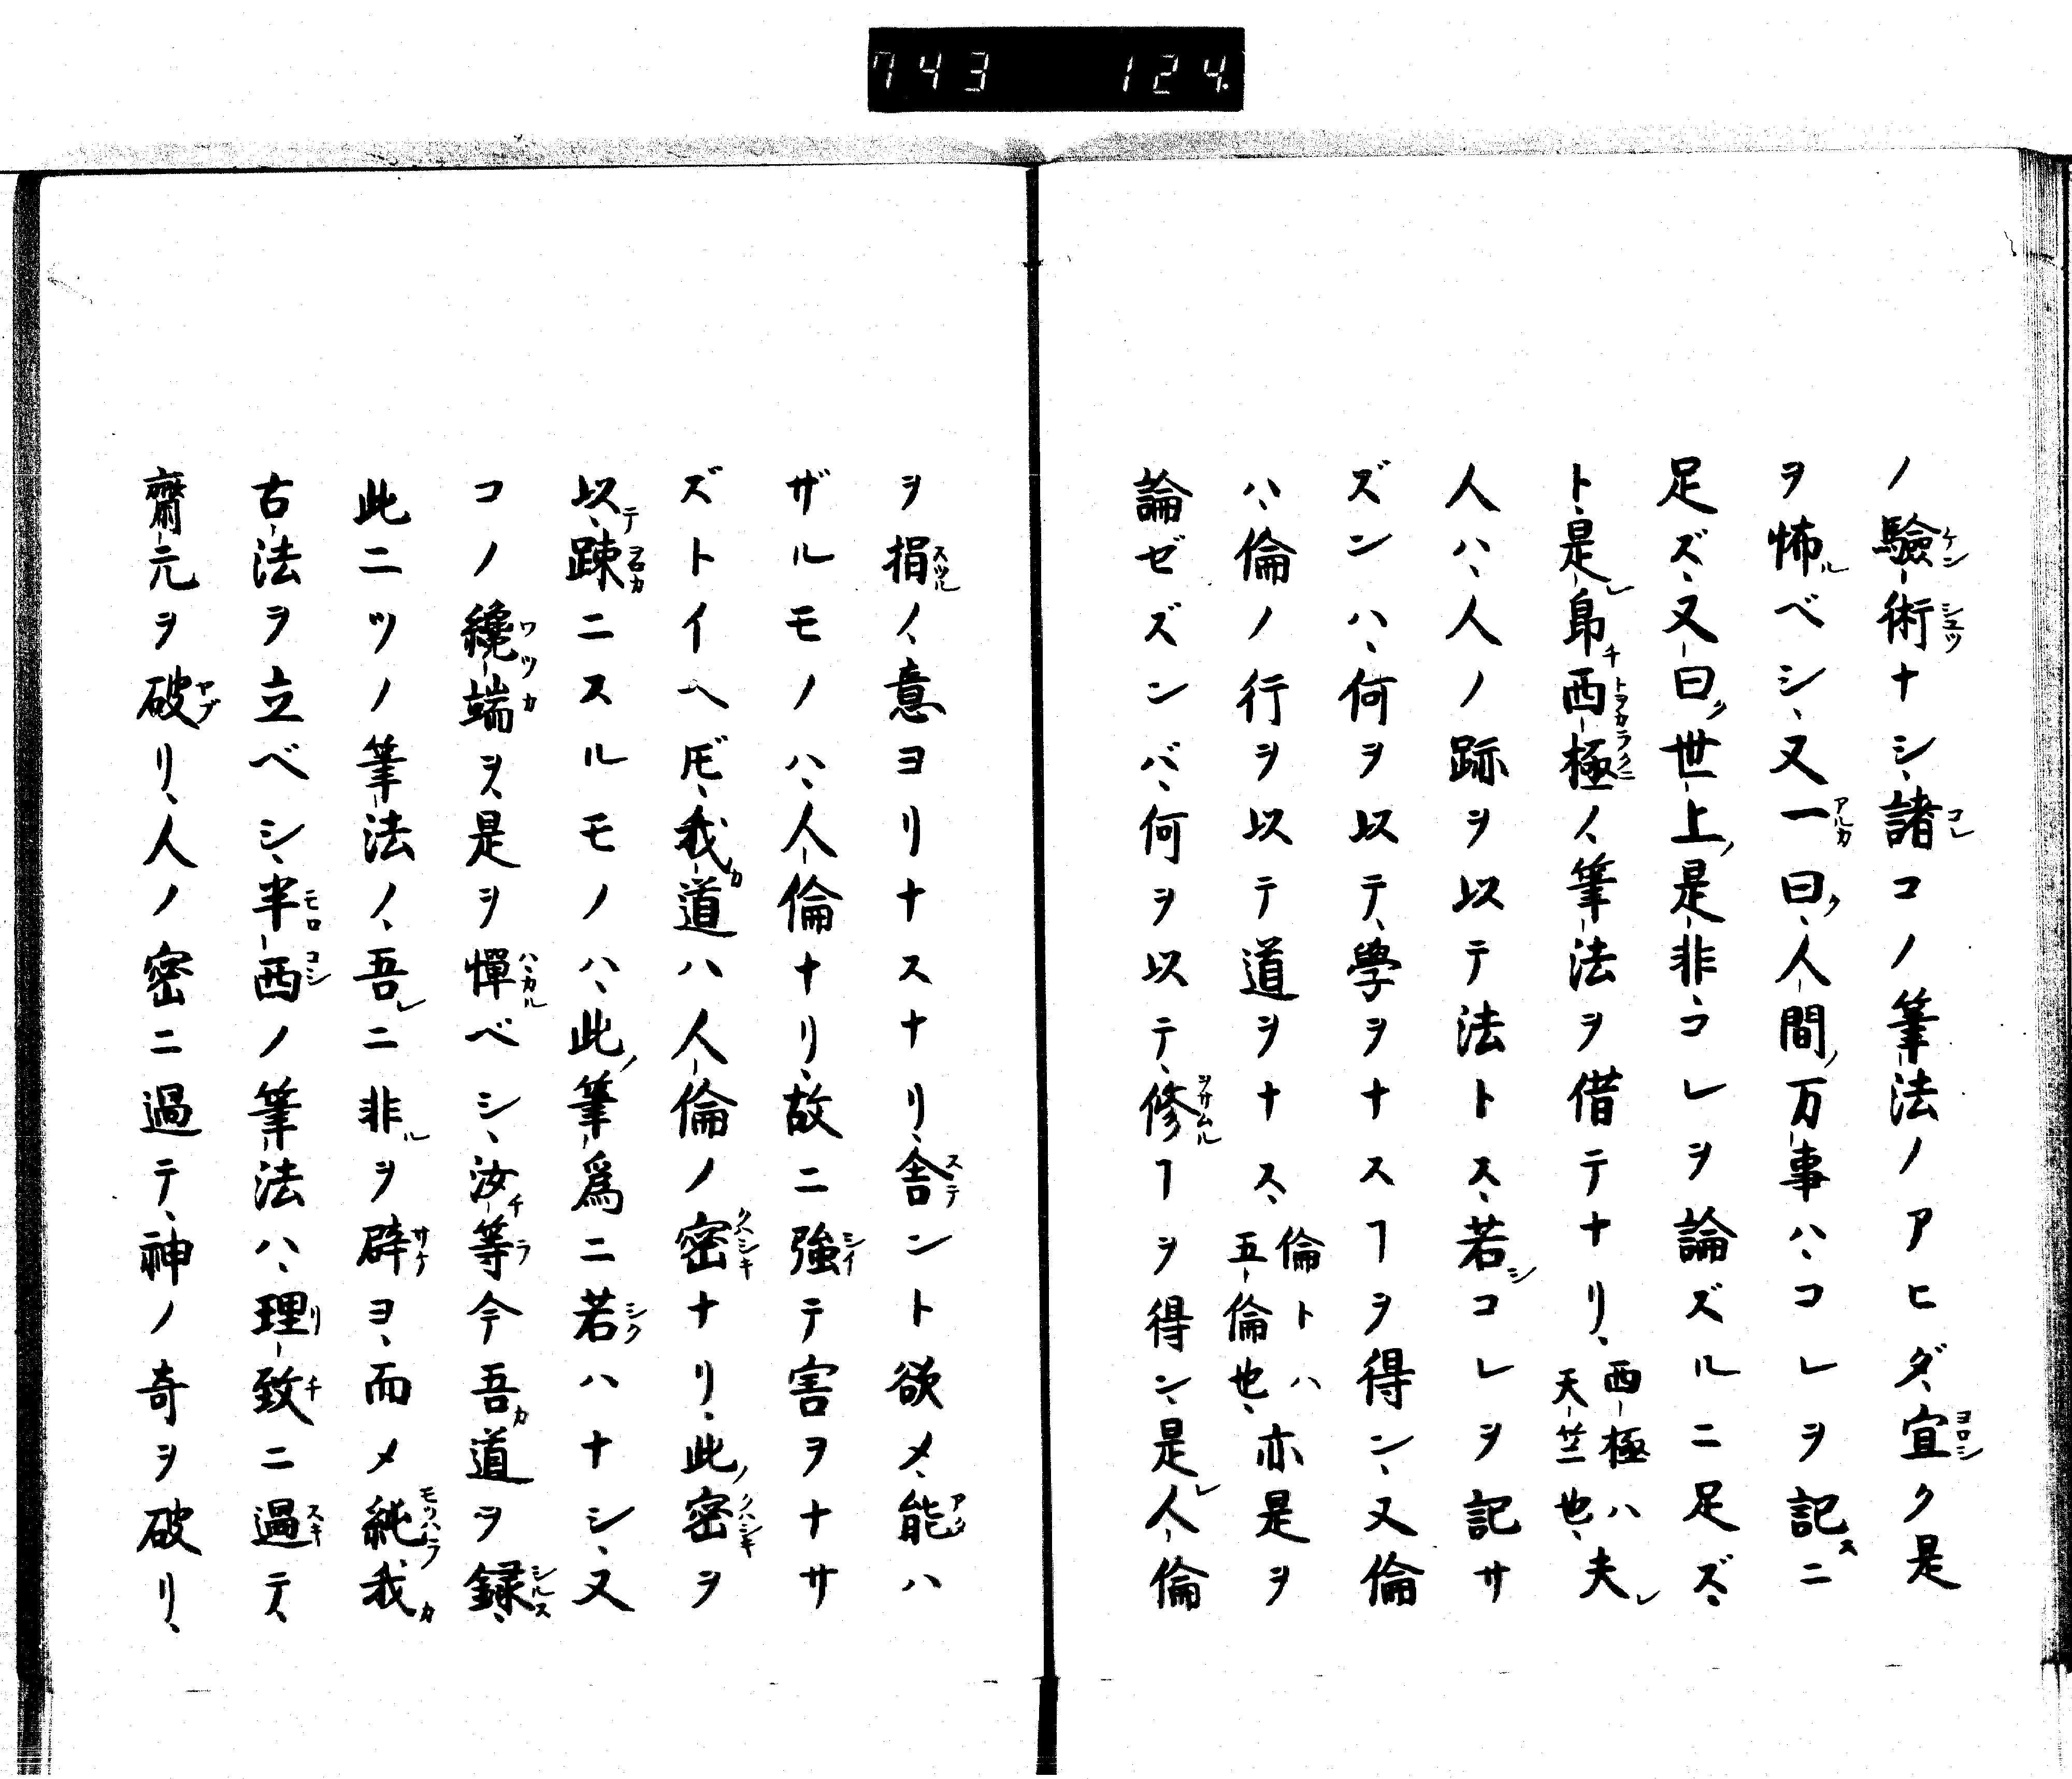 743 124
ノ驗術ナシ、諸コノ筆法ノアヒダ、宜ク是
ヲ怖ルベシ、又一曰ク、人間ノ万事ハ、コレヲ記スニ
足ズ、又曰ク、世上ノ是非、コレヲ論ズルニ足ズ、
ト、是レ帛西極ノ、筆法ヲ借テナリ、西極ハ天竺也、夫レ
人ハ、人ノ跡ヲ以テ法トス、若シコレヲ記サ
ズンハ、何ヲ以テ、學ヲナスヿヲ得ン、又倫
ハ、倫ノ行ヲ以テ道ヲナス、倫トハ五倫也、亦是ヲ
論ゼズンバ、何ヲ以テ、修ヿヲ得ン、是レ人倫
ヲ捐ノ、意ヨリナスナリ、舎ント欲メ、能ハ
ザルモノハ、人倫ナリ、故ニ強テ害ヲナサ
ズトイヘ𪜈、我カ道ハ人倫ノ密ナリ、此ノ密ヲ
以テ、踈ニスルモノハ、此ノ筆爲ニ若ハナシ、又
コノ纔端ヲ、是ヲ憚ベシ、汝等今吾カ道ヲ録、
此ニツノ筆法ノ、吾レニ非ルヲ辟ヨ、而メ純我カ
古法ヲ立ベシ、半西ノ筆法ハ、理致ニ過テ、
齋元ヲ破リ、人ノ密ニ過テ、神ノ奇ヲ破リ、